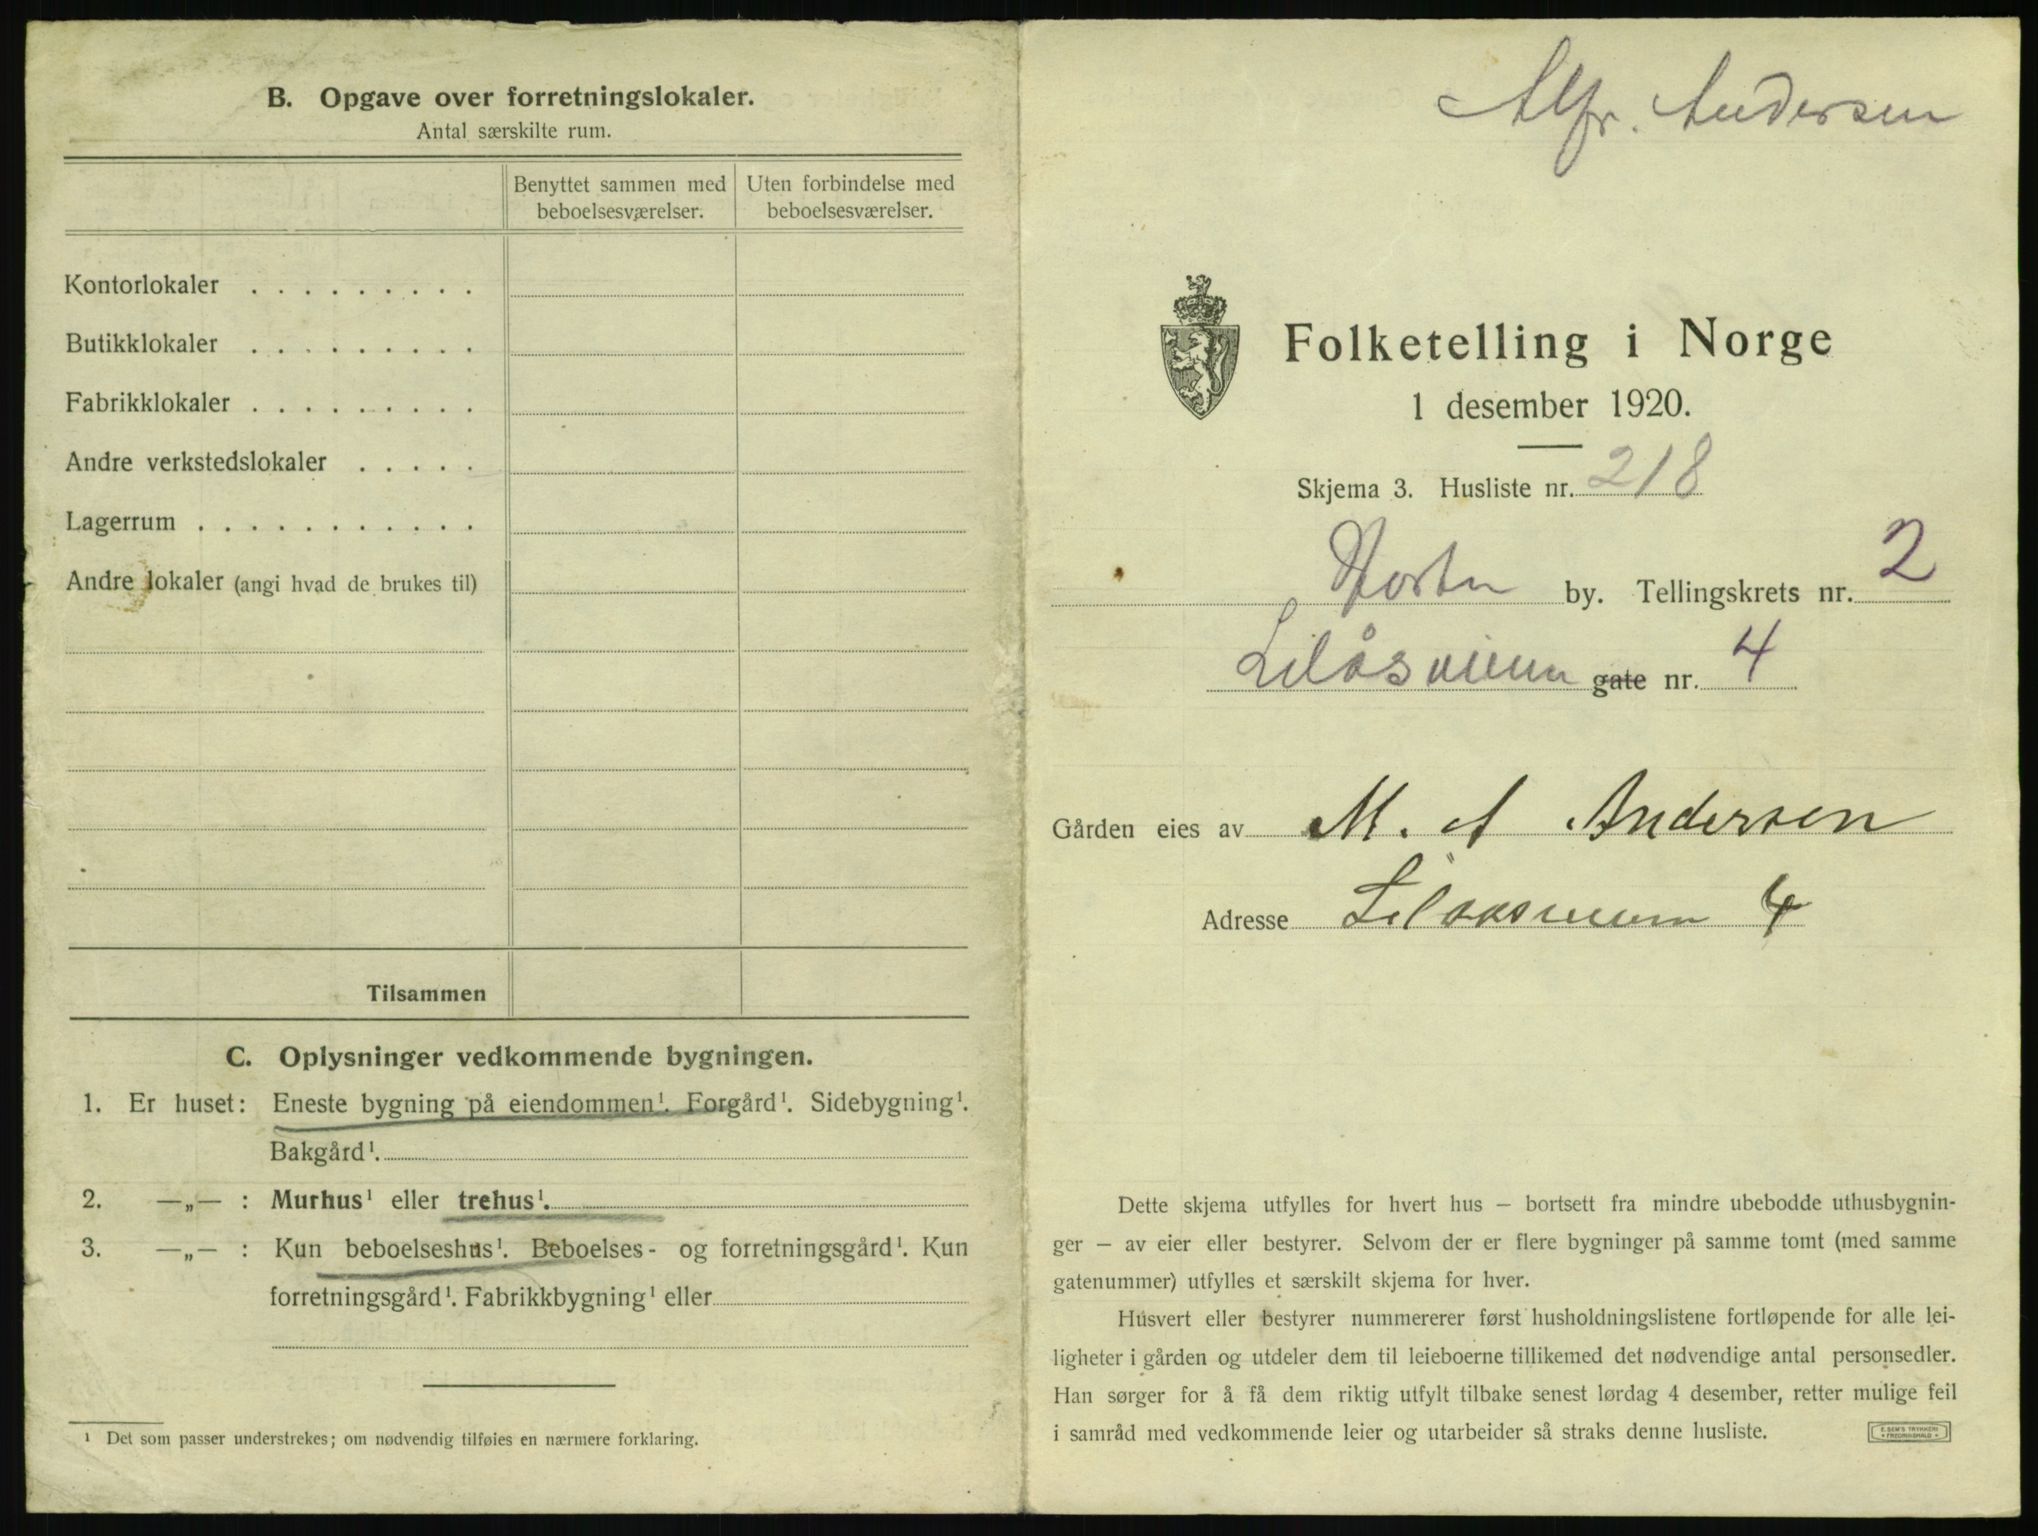 B. Opgave over forretningslokaler.
Antal særskilte rum.
Benyttet sammen med beboelsesværelser.
Uten forbindelse med beboelsesværelser.
Kontorlokaler . . . . . . . . .
Butikklokaler . . . . . . . . .
Fabrikklokaler . . . . . . . . .
Andre verkstedslokaler . . . . .
Lagerrum . . . . . . . . . . .
Andre lokaler (angi hvad de brukes til)
Tilsammen
C. Oplysninger vedkommende bygningen.
1. Er huset: Eneste bygning på eiendommen¹. Forgård¹. Sidebygning¹.
Bakgård¹.
2. —„— : Murhus¹ eller trehus¹.
3. —„— : Kun beboelseshus¹. Beboelses- og forretningsgård¹. Kun
forretningsgård¹. Fabrikkbygning¹ eller
¹ Det som passer understrekes; om nødvendig tilføies en nærmere forklaring.
Alfr. Andersen
Folketelling i Norge
1 desember 1920.
Skjema 3. Husliste nr. 218
Horten by. Tellingskrets nr. 2
Liløsveien gate nr. 4
Gården eies av M. A Andersen
Adresse 4
Dette skjema utfylles for hvert hus — bortsett fra mindre ubebodde uthusbygnin-
ger — av eier eller bestyrer. Selvom der er flere bygninger på samme tomt (med samme
gatenummer) utfylles et særskilt skjema for hver.
Husvert eller bestyrer nummererer først husholdningslistene fortløpende for alle lei-
ligheter i gården og utdeler dem til leieboerne tillikemed det nødvendige antal personsedler.
Han sørger for å få dem riktig utfylt tilbake senest lørdag 4 desember, retter mulige feil
i samråd med vedkommende leier og utarbeider så straks denne husliste.
E. SEM'S TRYKKERI
FREDRIKSHALD